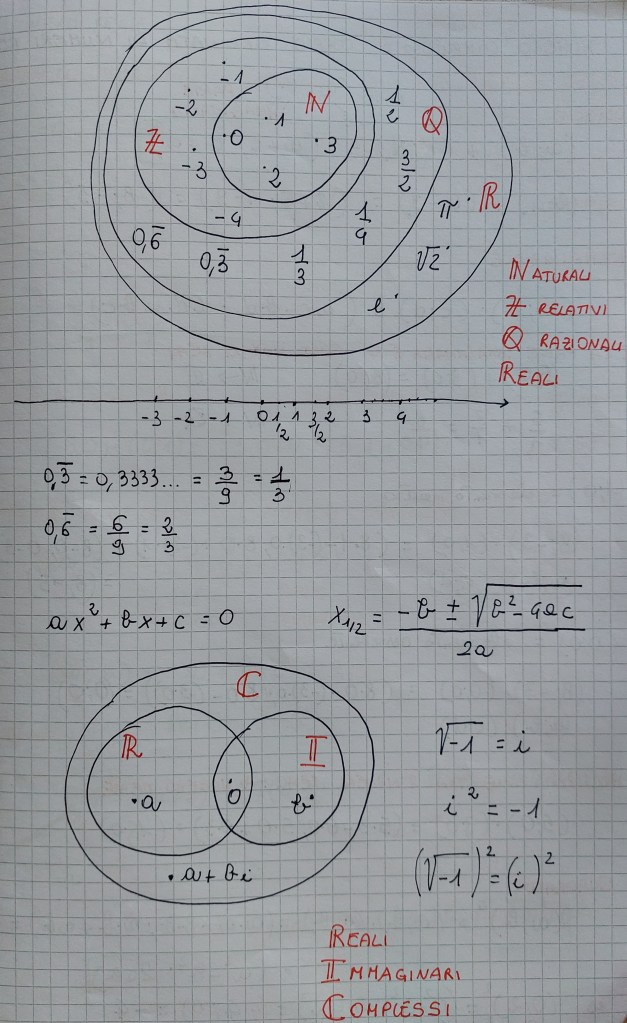 -1
ℕ
-2
·1
1/2
ℚ
ℤ
·0
·3
-3
·2
3/2
π·
ℝ
-4
1/4
0,6̅
0,3̅
1/3
√2·
e·
NATURALI
ℤ RELATIVI
ℚ RAZIONALI
REALI
-3 -2 -1 0 1/2 1 3/2 2 3 4
0,3̅ = 0,3333... = 3/9 = 1/3
0,6̅ = 6/9 = 2/3
ax² + bx + c = 0
x1/2 = (-b ± √(b² - 4ac)) / 2a
ℂ
ℝ
𝕀
·a
0
b·
·a + bi
√-1 = i
i² = -1
(√-1)² = (i)²
REALI
IMMAGINARI
COMPLESSI